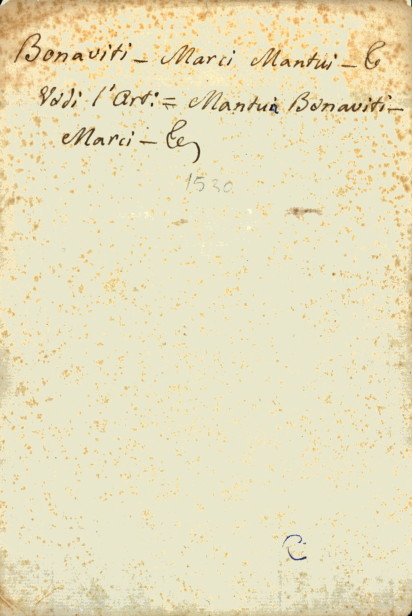 Bonaviti - Marci Mantui - &
Vedi l'Art: = Mantua Bonaviti -
Marci - &c,
1530
C